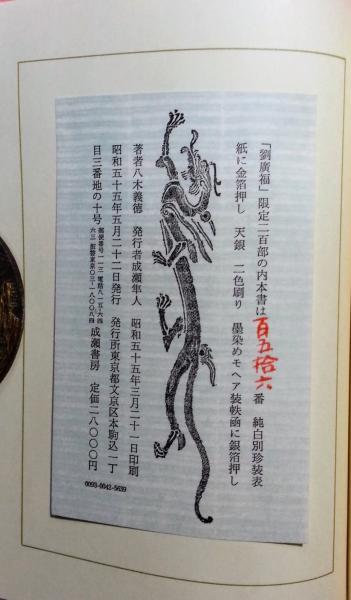 「劉廣福」限定二百部の内本書は百五拾六番　純白別珍装表
紙に金箔押し　天銀　二色刷り　墨染めモヘア装帙函に銀箔押し
著者八木義徳　発行者成瀬隼人　昭和五十五年三月二十一日印刷
昭和五十五年五月二十二日発行　発行所東京都文京区本駒込一丁
目三番地の十号 成瀬書房　定価二八〇〇〇円
0093-0042-5639